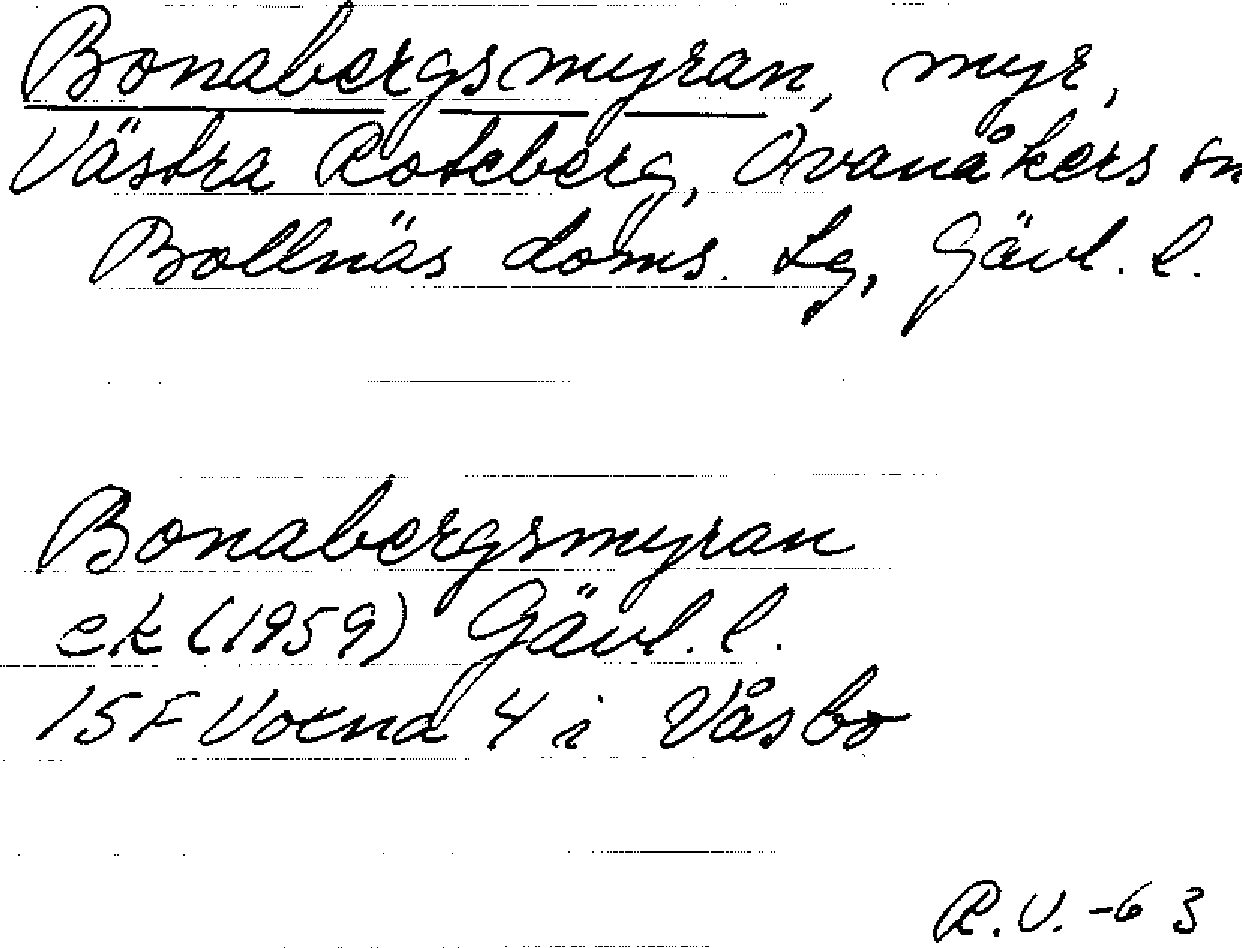 Bonabergsmyran, myr,
Västra Roteberg, Ovanåkers sn
Bollnäs doms. Lg, Gävl. l.
Bonabergsmyran
ek (1959) Gävl. l.
15F Voxna 4 i Våsbo
R.V. -63